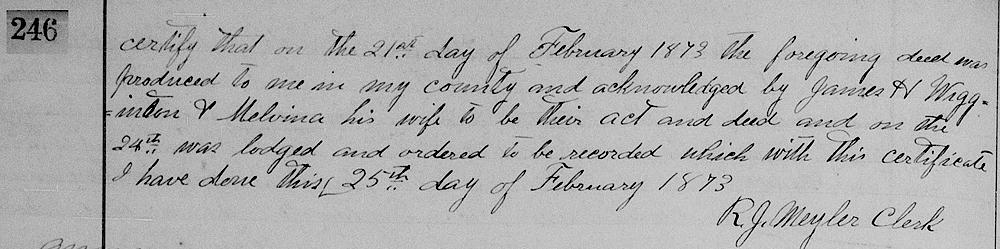 246
certify that on the 21st day of February 1873 the foregoing deed was
produced to me in my county and acknowledged by James H Wigg=
=inton & Melvina his wife to be their act and deed and on the
24th was lodged and ordered to be recorded which with this certificate
I have done this 25th day of February 1873
R. J. Meyler Clerk